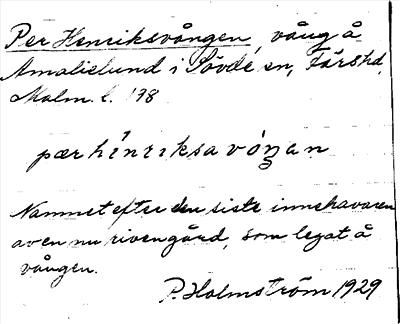 Per Henriksvången, vång å
Amalielund i Sövde sn, Färs hd,
Malm. l. 198
pær hínriksa vóŋan
Namnet efter den siste innehavaren
av en nu riven gård, som legat å
vången.
P. Holmström 1929